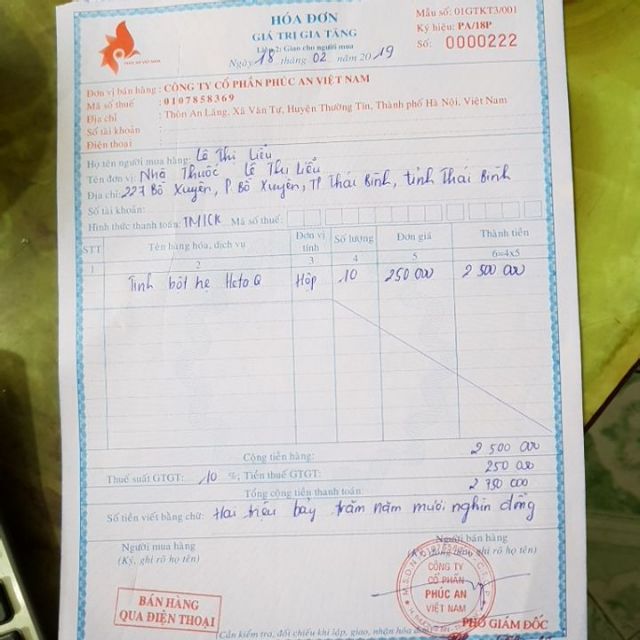 HÓA ĐƠN
GIÁ TRỊ GIA TĂNG
Liên 2: Giao cho người mua
Ngày 18 tháng 02 năm 2019
Mẫu số: 01GTKT3/001
Ký hiệu: PA/18P
Số: 0000222
Đơn vị bán hàng : CÔNG TY CỔ PHẦN PHÚC AN VIỆT NAM
Mã số thuế : 0107858369
Địa chỉ : Thôn An Lãng, Xã Văn Tự, Huyện Thường Tín, Thành phố Hà Nội, Việt Nam
Số tài khoản :
Điện thoại :
Họ tên người mua hàng: Lê Thị Liễu
Tên đơn vị: Nhà Thuốc Lê Thị Liễu
Địa chỉ: 227 Bồ Xuyên, P. Bồ Xuyên, TP Thái Bình, tỉnh Thái Bình
Số tài khoản:
Hình thức thanh toán: TM/CK Mã số thuế:
STT Tên hàng hóa, dịch vụ Đơn vị tính Số lượng Đơn giá Thành tiền
1 2 3 4 5 6=4x5
Tinh bột hẹ HetoQ Hộp 10 250 000 2 500 000
Cộng tiền hàng: 2 500 000
Thuế suất GTGT: 10 %; Tiền thuế GTGT: 250 000
Tổng cộng tiền thanh toán: 2 750 000
Số tiền viết bằng chữ: Hai triệu bảy trăm năm mươi nghìn đồng
Người mua hàng
(Ký, ghi rõ họ tên)
Người bán hàng
ghi rõ họ tên)
CÔNG TY
CỔ PHẦN
PHÚC AN
VIỆT NAM
BÁN HÀNG
QUA ĐIỆN THOẠI
PHÓ GIÁM ĐỐC
(Cần kiểm tra, đối chiếu khi lập, giao, nhận hóa